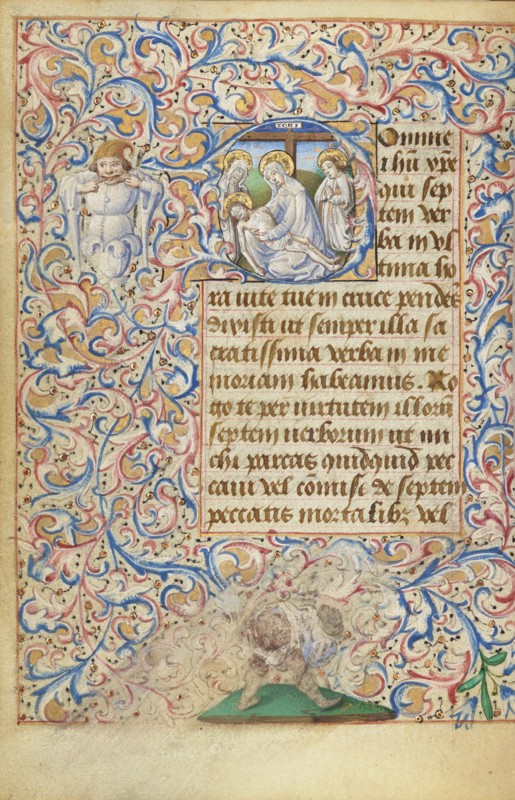 INRI
Omine
ihū xpe
qui sep
tem ver
ba in vl
tima ho
ra uite tue in cruce pendēs
dixisti ut semper illa sa
cratissima verba in me
moriam habeamus. Ro
go te per uirtutem illorū
septem uerborum ut mi
chi parcas quidquid pec
caui vel comisi de septem
peccatis mortalibꝫ vel